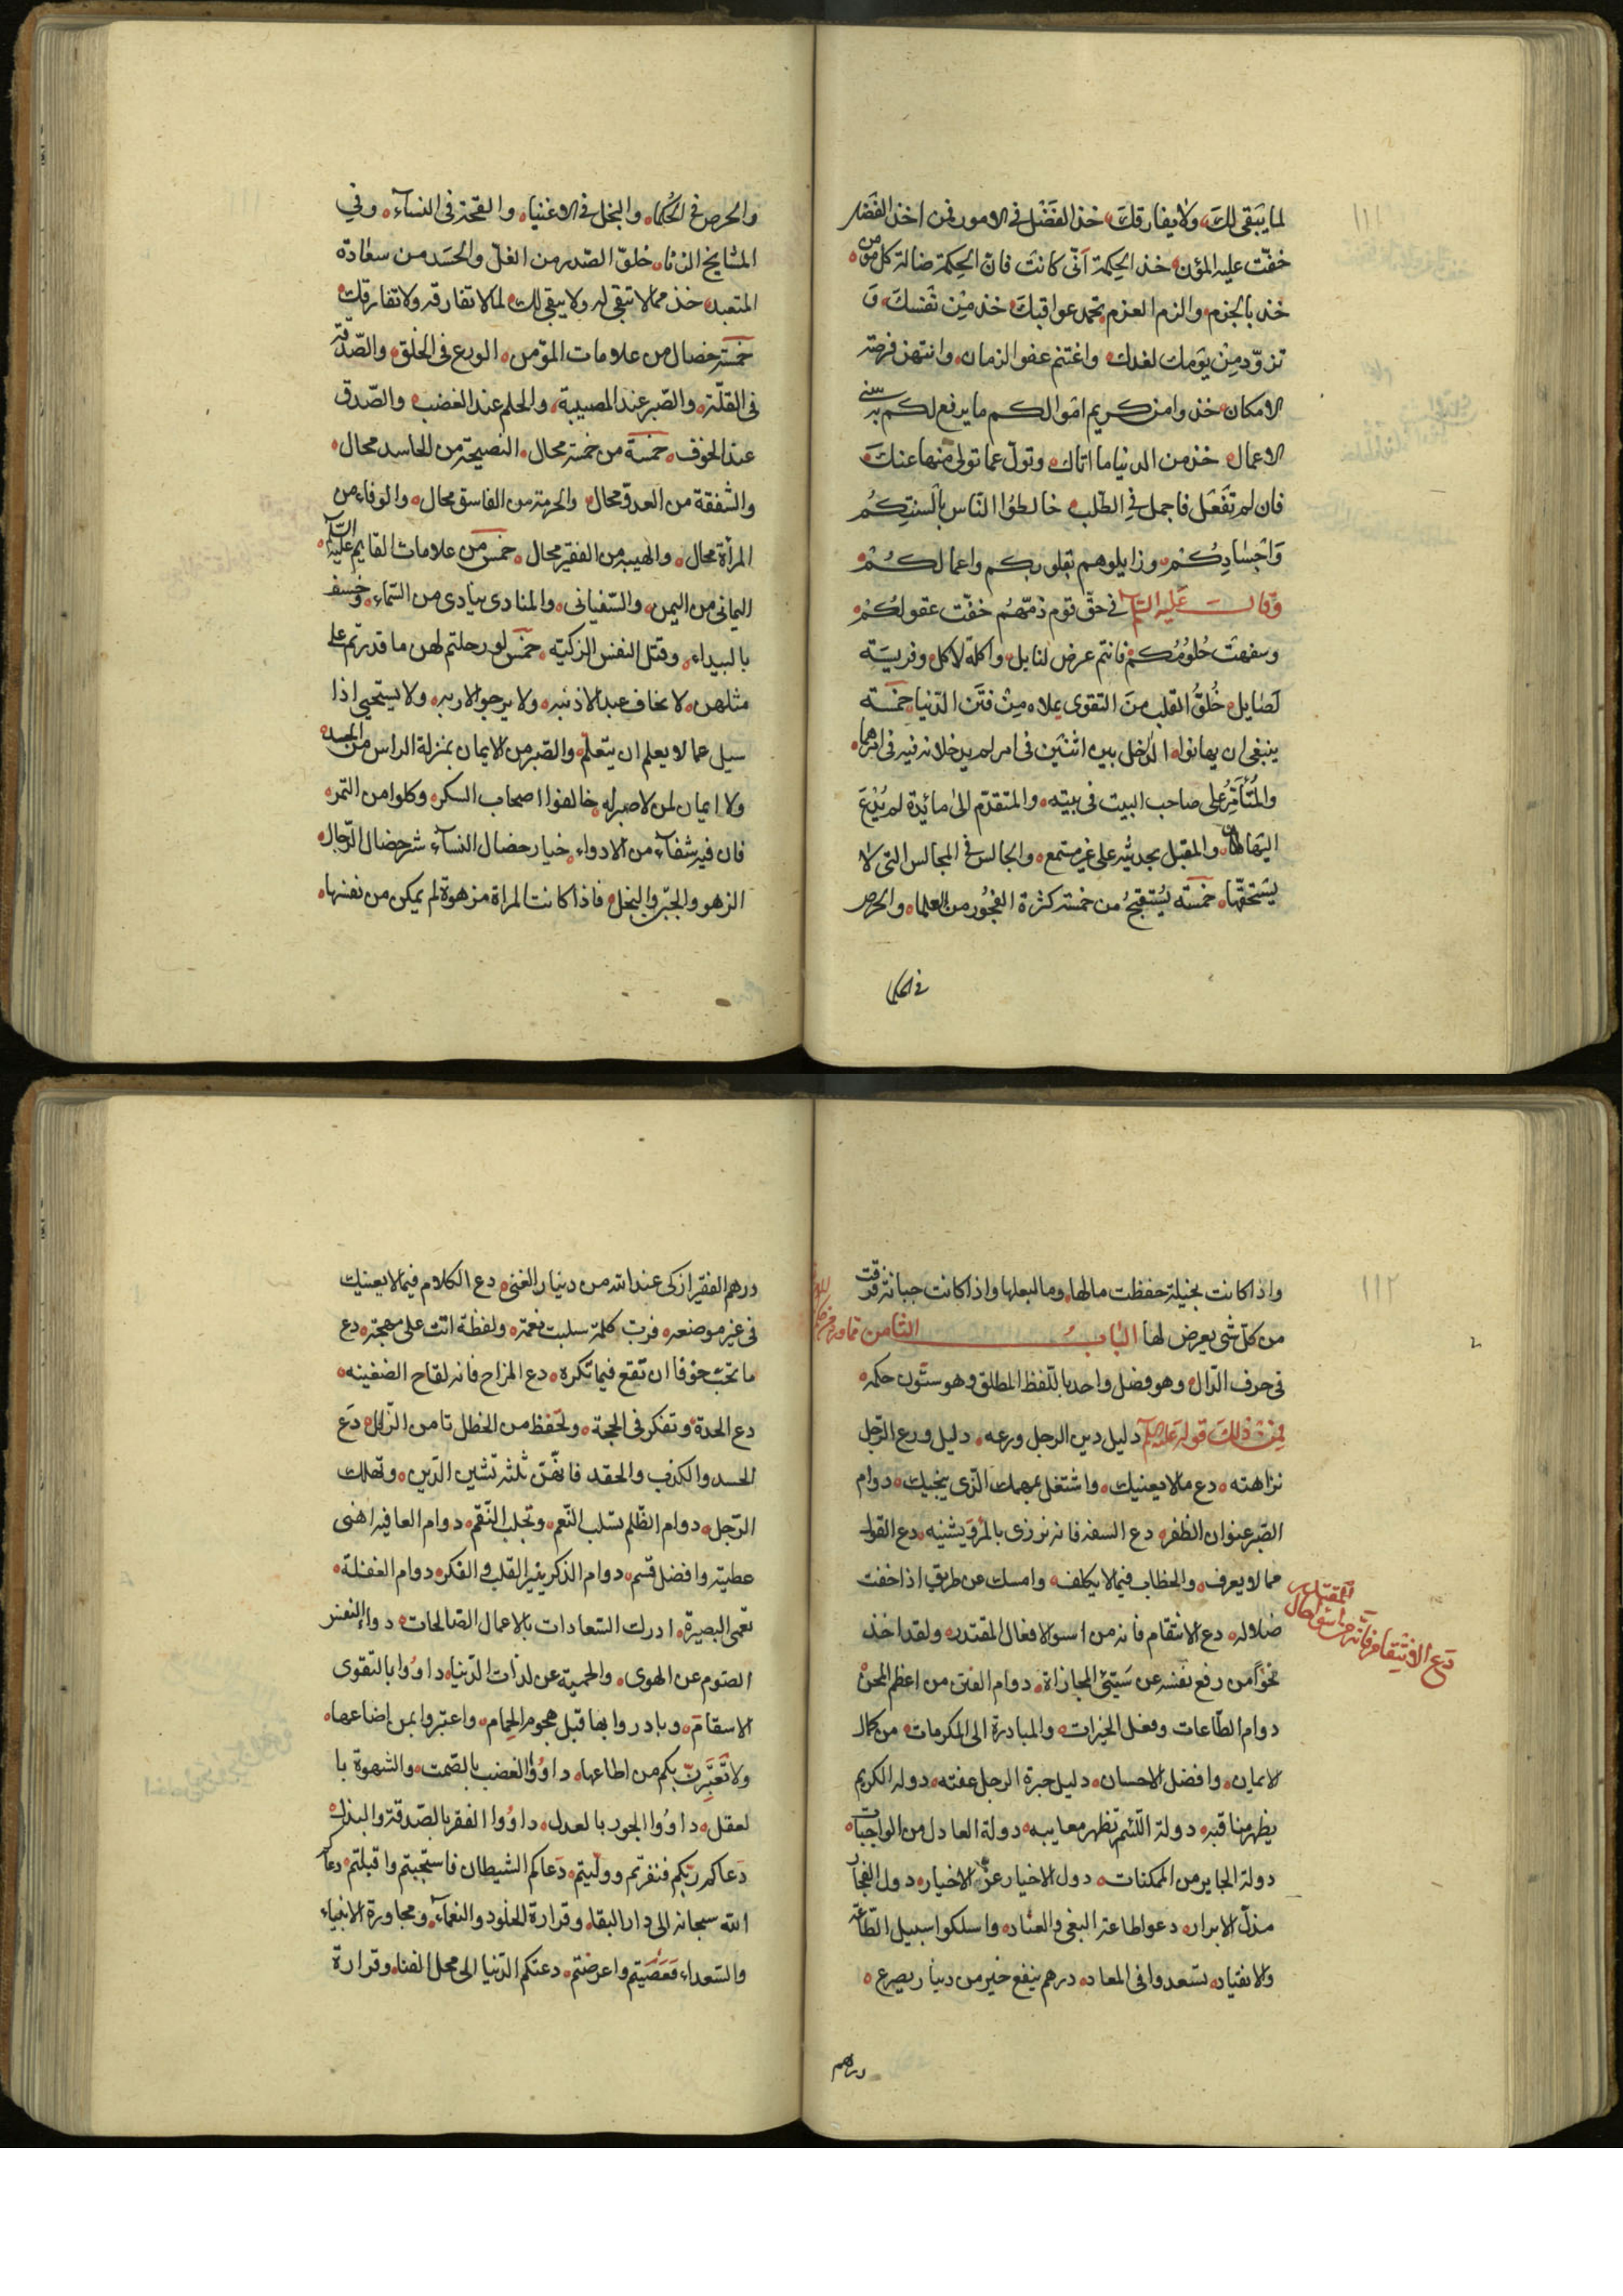 ١١١
لما يَبْقى لكَ ولا يفارقكَ خذ الفَضْل في الامور فمن اخذ الفضل
خفّت عليه المؤن خذ الحكمة اَنّى كانت فانّ الحكمة ضالة كل مؤمن
خذ بالجزم والزم العزم تحمد عواقبكَ خذ مِنْ نفسكَ وَ
تزوّد مِنْ يَومك لغدك واغتنم عفو الزمان وانتهز فرصة
الامكان خذوا من كريم امْوالكم ما يرفع لكم به سنى
الاعمال خذ من الدنيا ما اتاك وتولّ عما تولى مِنها عنكَ
فان لم تَفْعَل فاجمل في الطّلب خالطوُا النّاس بِاَلسِنتِكُم
وَاجْسَادِكُمْ وزايلوهم بقلوبكم واعمالكُمْ
وَقال عَليه السّلام في حقّ قوم ذمّهُم خفّت عقولكُمْ
وسفهت حُلُومُكم فانتم عرض لنابل واكلة لاكل وفريسَة
لصَايل خُلُوّ القلب منَ التقوى يملاه مِنْ فتن الدّنيا خمسَة
ينبغى ان يهانوا الدّاخل بين اثنَين في امر لم يدخلانه فيه فى امرهما
والمُتَأمِّرُ على صاحب البيت فى بيته والمتقدّم الى مائِدة لم يُدْعَ
اليْها والمقبل بحديثه على غير مستمع والجالس في المجالس التى لا
يَستحقّها خمسَة يُسْتقبَحُ من خمسة كثرة الفجُور من العلماء والحرص
في الحكما
والحرص فى الحُكماء والبخل فى الاغنياء والقحة فى النسآء وفي
المشايخ الزنا خلوّ الصّدر من الغلّ والحسَد من سعَادة
المتعبد خذ مما لا تبقى له ولا يبقى لك لما لا تفارقه ولا تفارقك
خمسَة خصال من علامات المؤمن الورع فى الخلق والصّدقة
فى القلّة والصّبر عند المصيبة والحلم عند الغضب والصّدق
عند الخوف خمسَة من خمسَة محال النصيحة من الحاسد محال
والشفقة من العدوّ محال والحرمة من الفاسق محال والوفاء من
المرأة محال والهيبة من الفقير محال خمس من علامات القايم عليه السّلام
اليمانى من اليمن والسّفيانى والمنادى ينادى من السّماء وخسف
بالبيداء وقتل النفس الزكيّة خمس لو رحلتم لهن ما قدرتم على
مثلهن لا يخاف عبد الا ذنبه ولا يرجو الا ربه ولا يستحيى اذا
سيل عما لا يعلم ان يتعلم والصّبر من الايمان بمنزلة الراس من الجسد
ولا ايمان لمن لا صبر له خالفوا اصحاب السكر وكلوا من التمر
فان فيه شفآء من الادواء خيار خصال النسآء شر خصال الرّجال
الزهو والجبن والبخل فاذا كانت المراة مزهوة لم يمكن من نفسها
١١٢
واذا كانت بخيلة حفظت مالها وما لبعلها واذا كانت جبانة فرقت
من كلّ شى يعرض لها البَابُ الثامن
فى حرف الدّال وهو فصل واحد باللّفظ المطلق وهو ستّون حكمة
فمِنْ ذلكَ قوله عليه السلام دليل دين الرجل ورعه دليل ورع الرّجل
نزاهته دع ما لا يعنيك واشتغل بمهمك الّذى ينجيك دوام
الصّبر عنوان الظفر دع السفه فانه يزرى بالمرؤ ويشنيه دع القول
مما لا يعرف والخطاب فيما لا يكلف وامسك عن طريق اذا خفت
ضلاله دع الانتقام فانه من اسوا افعال المقتدر ولقد اخذ
دَع الانتقام فانّه من اسْوَاِ افعال المقتدر
نحوًا من رفع نفسه عن سَيّئ المجازاة دوام الفتن من اعظم المحن
دوام الطّاعات وفعل الخيرات والمبادرة الى المكرمات من كمال
الايمان وافضل الاحسان دليل حيرة الرجل عفته دولة الكريم
يظهر مناقبه دولة اللّئيم تظهر معايبه دولة العادل من الواجبات
دولة الجاير من الممكنات دول الاخيار عزّ الاخيار دول الفجار
مذلّ الابرار دعوا طاعة البغى والعناد واسلكوا سبيل الطّاعة
والانقياد تسعدوا فى المعاد درهم ينفع خير من دينار يصرع
درهم
درهم الفقير ازكى عند الله من دينار الغنى دع الكلام فيما لا يعينيك
فى غير موضعه فربّ كلمة سلبت نعمة ولفظة اتت على مهجة دع
ما تحبّ خوفا ان تقع فيما تكره دع المزاح فانه لقاح الضغينه
دع الحدة وتفكر فى الحجة وتحفظ من الخطل تامن الزّلل دَع
الحسد والكذب والحقد فانهّنّ ثلثة تشين الدّين وتهلك
الرّجل دوام الظّلم يسلب النّعم وتجلب النّقم دوام العافية اهنى
عطيّة وافضل قسم دوام الذكر ينير القلب والفكر دوام الغفلة
تعمى البصيرة ادرك السّعادات بالاعمال الصّالحات دواء النفس
الصّوم عن الهوى والحمية عن لذات الدّنيا داوُوا بالتقوى
الاسقام وبادروا بها قبل هجوم الحمام واعتبروا بمن اضاعها
ولا تَعْتَبِرنّ بكم من اطاعها داوُوا الغضب بالصّمت والشهوة با
لعقل داوُوا الجور بالعدل داوُوا الفقر بالصّدقة والبذل
دَعاكم ربّكم فنفرتم وولّيتم دَعاكم الشيطان فاستجبتم واقبلتم دعا
الله سبحانه الى دار البقا وقرارة الخلود والنعمآء ومجاورة الانبياء
والسّعداء فَعَصَيتم واعرضتم دعتكم الدّنيا الى محل الفنا وقرارة